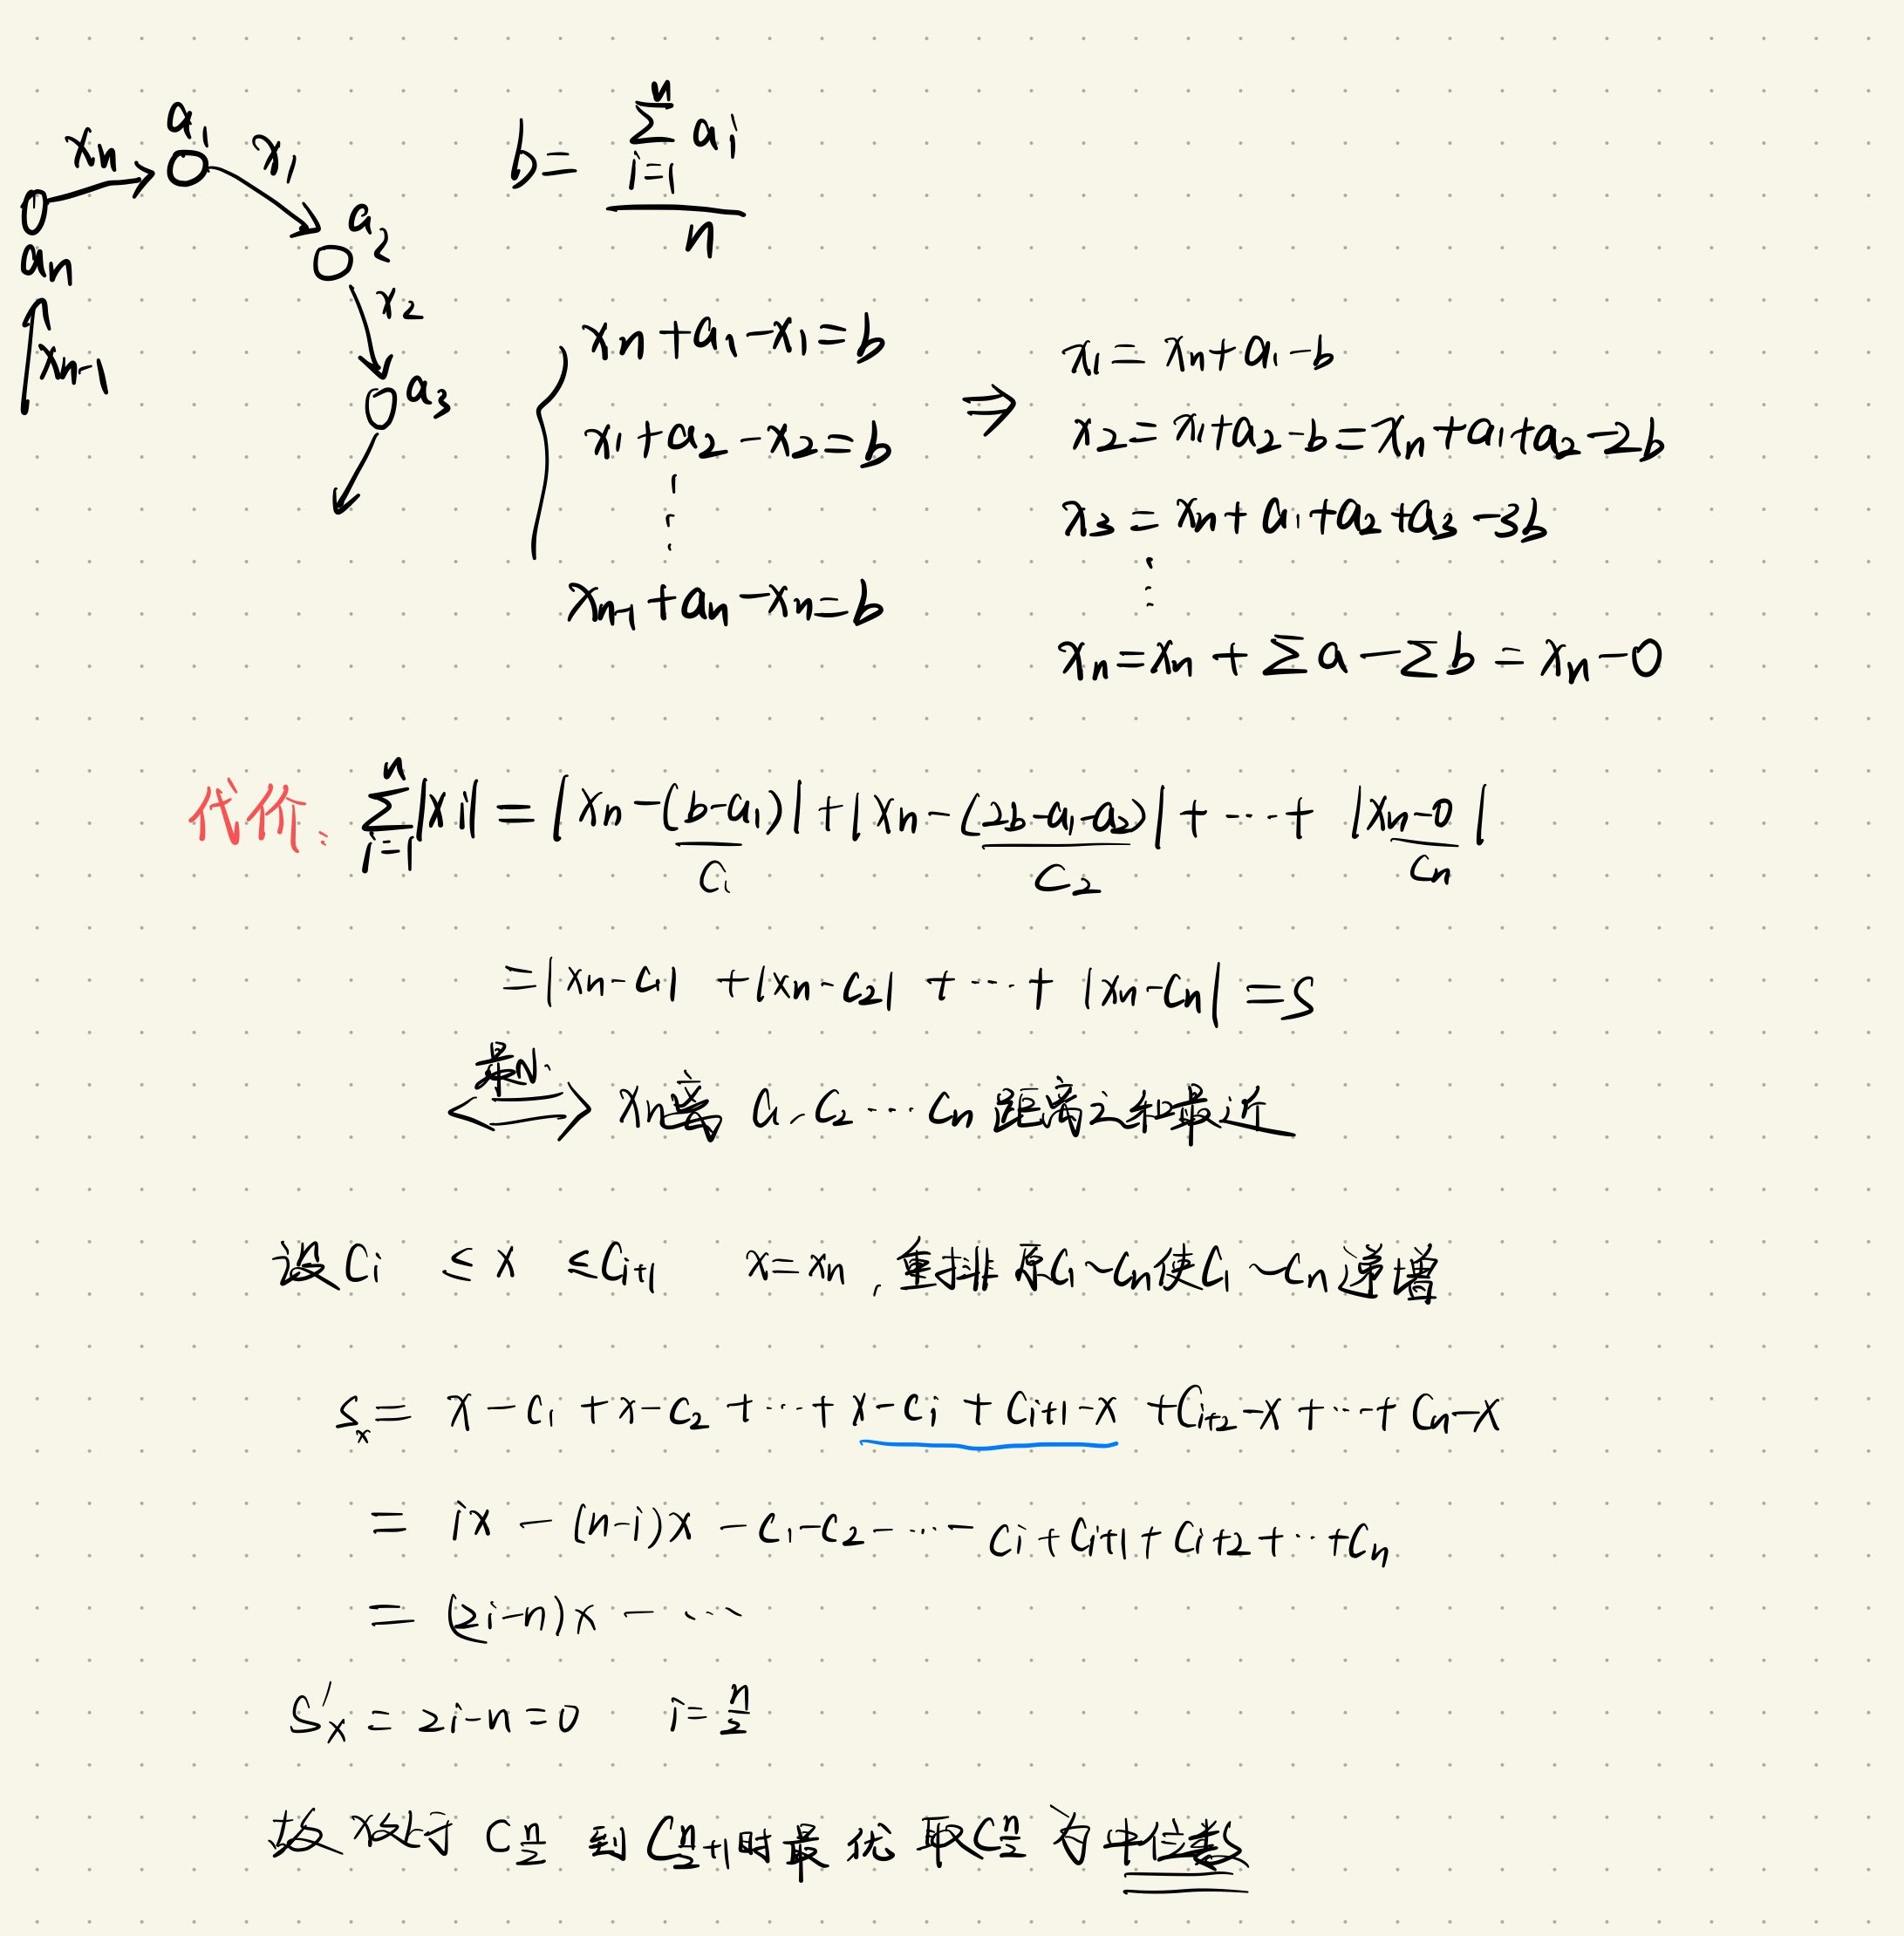 a₁
xₙ
x₁
aₙ
a₂
x₂
xₙ₋₁
a₃
b = (∑_{i=1}^{n} aᵢ) / n
xₙ + a₁ - x₁ = b
x₁ + a₂ - x₂ = b
⋮
xₙ₋₁ + aₙ - xₙ = b
⇒
x₁ = xₙ + a₁ - b
x₂ = x₁ + a₂ - b = xₙ + a₁ + a₂ - 2b
x₃ = xₙ + a₁ + a₂ + a₃ - 3b
⋮
xₙ = xₙ + ∑a - ∑b = xₙ - 0
代价: ∑_{i=1}^{n} |xi| = |xₙ - (b-a₁)| + |xₙ - (2b-a₁-a₂)| + ⋯ + |xₙ-0|
C₁ C₂ Cₙ
= |xₙ-C₁| + |xₙ-C₂| + ⋯ + |xₙ-Cₙ| = S
最小
⟺ xₙ离 C₁、C₂ ⋯ Cₙ 距离之和最近
设 Cᵢ ≤ x ≤ Cᵢ₊₁ x = xₙ, 重排原C₁~Cₙ使C₁~Cₙ递增
Sₓ = x - C₁ + x - C₂ + ⋯ + x - Cᵢ + Cᵢ₊₁ - x + Cᵢ₊₂ - x + ⋯ + Cₙ - x
= ix - (n-i)x - C₁ - C₂ - ⋯ - Cᵢ + Cᵢ₊₁ + Cᵢ₊₂ + ⋯ + Cₙ
= (2i-n)x - ⋯
S'ₓ = 2i - n = 0 i = n/2
故 x处于 C_{n/2} 到 C_{n/2+1} 时最优 取C_{n/2} 为中位数